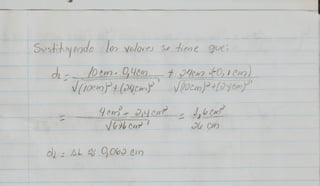 Sustituyendo los valores se tiene que:
dL = 10cm · 0,4cm / √(10cm)² + (24cm)² + 24cm (-0,1cm) / √(10cm)² + (24cm)²
= 4cm² - 2,4cm² / √676cm² = 1,6cm² / 26 cm
dL = ΔL ≈ 0,062 cm